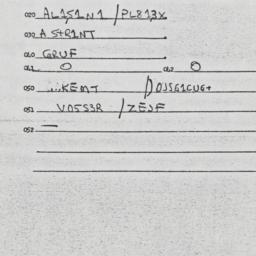 020 AL1S1N1 / PL813X
030 A STR1NT
040 GRUF
041 O 042 O
050 KEMT / DOJSG1CUG+
051 VOSS3R / ZEJF
052 —